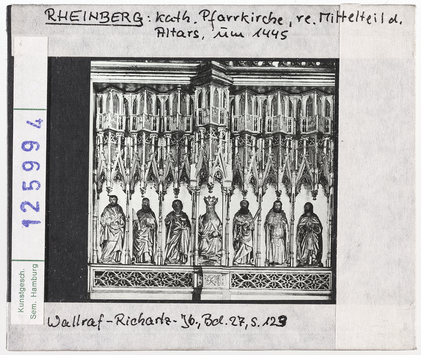 RHEINBERG: kath. Pfarrkirche, re. Mittelteil d.
Altars, um 1445
125994
Kunstgesch.
Sem. Hamburg
Wallraf-Richartz-Jb., Bd. 27, S. 129